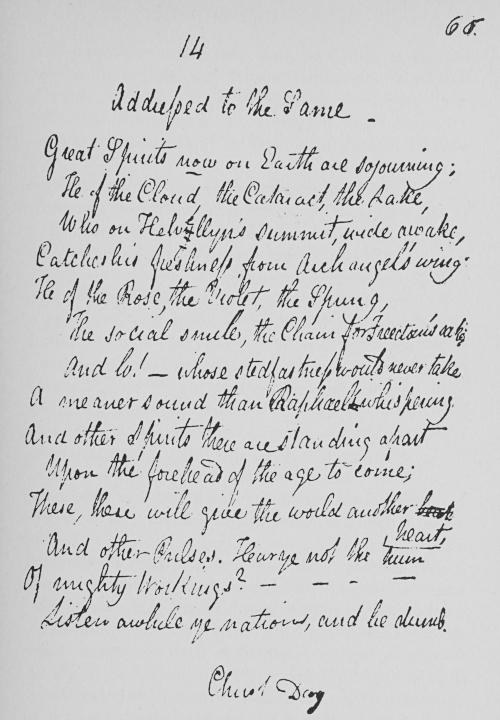 65.
14
Addressed to the Same
Great Spirits now on Earth are sojourning;
He of the Cloud, the Cataract, the Lake,
Who on Helvellyn's summit, wide awake,
Catches his freshness from Archangel's wing:
He of the Rose, the Violet, the Spring,
The social smile, the Chain for Freedom's sake;
And lo! — whose stedfastness would never take
A meaner sound than Raphael's whispering.
And other Spirits there are standing apart
Upon the forehead of the age to come;
These, these will give the world another
heart,
And other Pulses. Hear ye not the hum
Of mighty Workings? — — — —
Listen awhile ye nations, and be dumb.
Christ Day